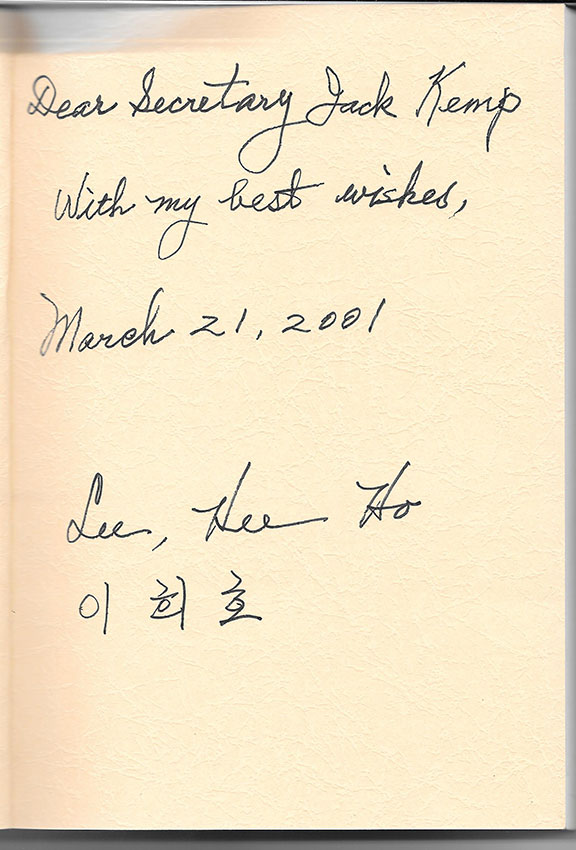 Dear Secretary Jack Kemp
With my best wishes,
March 21, 2001
Lee, Hee Ho
이 희 호